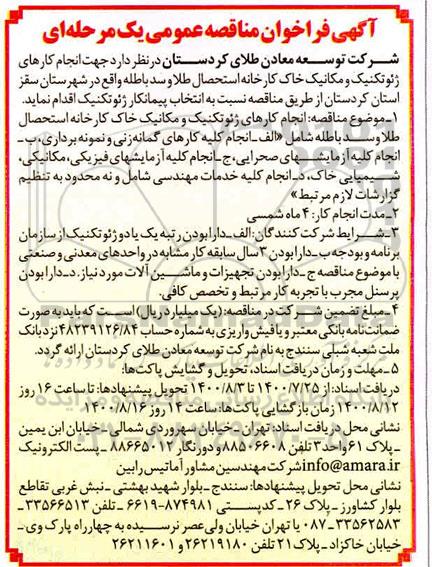 آگهی فراخوان مناقصه عمومی یک مرحله‌ای
شرکت توسعه معادن طلای کردستان در نظر دارد جهت انجام کارهای
ژئوتکنیک و مکانیک خاک کارخانه استحصال طلا و سد باطله واقع در شهرستان سقز
استان کردستان از طریق مناقصه نسبت به انتخاب پیمانکار ژئوتکنیک اقدام نماید.
۱-موضوع مناقصه: انجام کارهای ژئوتکنیک و مکانیک خاک کارخانه استحصال
طلا و سد باطله شامل «الف-انجام کلیه کارهای گمانه‌زنی و نمونه‌برداری، ب-
انجام کلیه آزمایشهای صحرایی، ج-انجام کلیه آزمایشهای فیزیکی، مکانیکی،
شیمیایی خاک، د-انجام کلیه خدمات مهندسی شامل و نه محدود به تنظیم
گزارشات لازم مرتبط»
۲-مدت انجام کار: ۴ ماه شمسی
۳-شرایط شرکت کنندگان: الف-دارا بودن رتبه یک یا دو ژئوتکنیک از سازمان
برنامه و بودجه ب-دارا بودن ۳ سال سابقه کار مشابه در واحدهای معدنی و صنعتی
با موضوع مناقصه ج-دارا بودن تجهیزات و ماشین آلات مورد نیاز. د-دارا بودن
پرسنل مجرب با تجربه کار مرتبط و تخصص کافی.
۴-مبلغ تضمین شرکت در مناقصه: (یک میلیارد ریال) است که باید به صورت
ضمانت‌نامه بانکی معتبر و یا فیش واریزی به شماره حساب ۴۸۲۳۹۱۲۶/۸۴ نزد بانک
ملت شعبه شبلی سنندج به نام شرکت توسعه معادن طلای کردستان ارائه گردد.
۵-مهلت و زمان دریافت اسناد، تحویل و گشایش پاکت‌ها:
دریافت اسناد: از ۱۴۰۰/۷/۲۵ تا ۱۴۰۰/۸/۳ تحویل پیشنهادها: تا ساعت ۱۶ روز
۱۴۰۰/۸/۱۲ زمان بازگشایی پاکت‌ها: ساعت ۱۴ روز ۱۴۰۰/۸/۱۶
نشانی محل دریافت اسناد: تهران-خیابان سهروردی شمالی-خیابان ابن یمین
-پلاک ۶۱ واحد ۳ تلفن ۸۸۵۰۶۶۰۸ و دورنگار ۸۸۶۶۵۰۱۲-پست الکترونیک
info@amara.ir شرکت مهندسین مشاور آماتیس رابین
نشانی محل تحویل پیشنهادها: سنندج-بلوار شهید بهشتی-نبش غربی تقاطع
بلوار کشاورز-پلاک ۲۶-کدپستی ۸۷۴۹۸۱-۶۶۱۹ تلفن: ۳۳۵۶۶۵۱۳-
۳۳۵۶۲۵۸۳-۰۸۷ یا تهران خیابان ولی‌عصر نرسیده به چهارراه پارک وی-
خیابان خاکزاد-پلاک ۲۱ تلفن ۲۶۲۱۹۱۸۰ و ۲۶۲۱۱۶۰۱